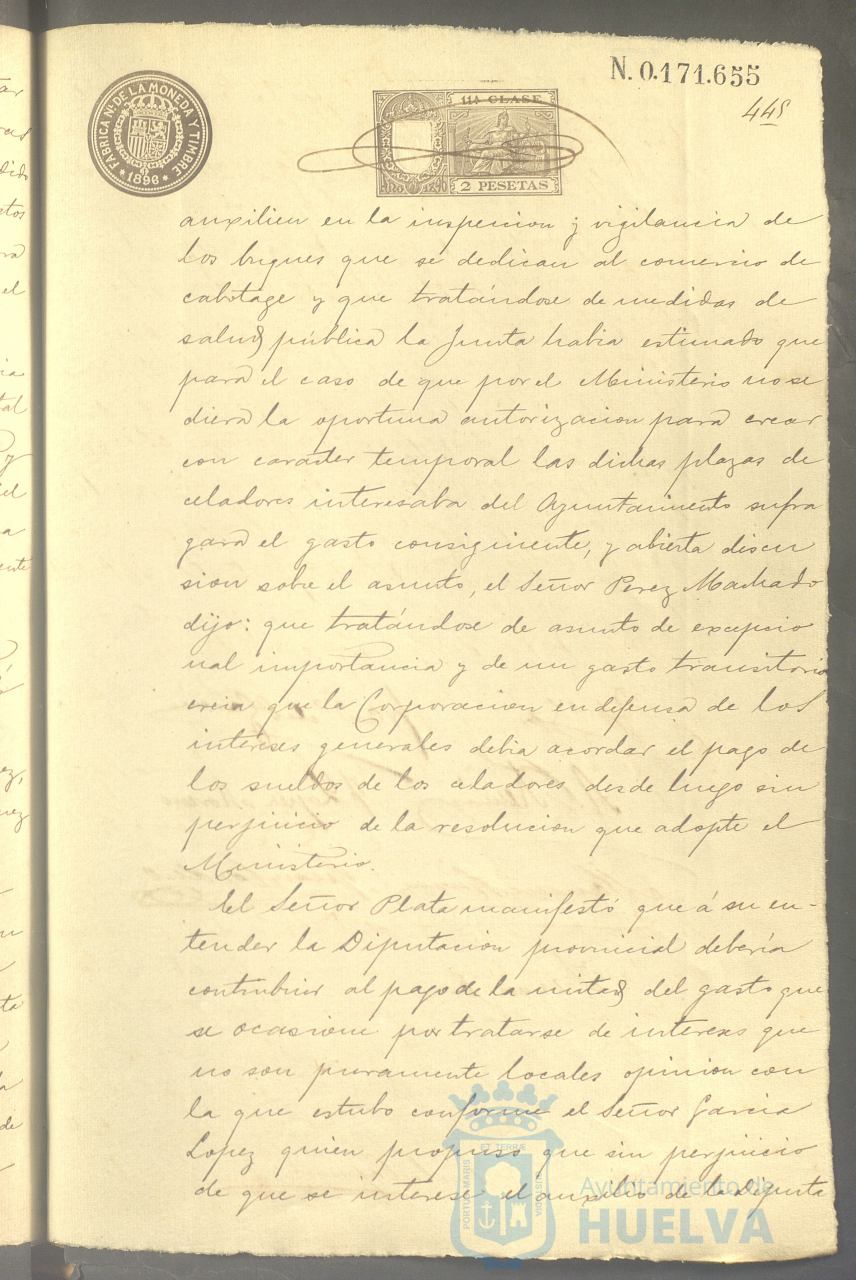 N. 0.171.655
445
FABRICA NL. DE LA MONEDA Y TIMBRE
* 1896 *
11ª CLASE
2 PESETAS
auxilien en la inspeccion y vigilancia de
los buques que se dedican al comercio de
cabotage y que tratándose de medidas de
salud pública la Junta habia estimado que
para el caso de que por el Ministerio no se
diera la oportuna autorizacion para crear
con caracter temporal las dichas plazas de
celadores interesaba del Ayuntamiento sufra
gara el gasto consiguiente, y abierta discu
sion sobre el asunto, el Señor Perez Machado
dijo: que tratándose de asunto de excepcio
nal importancia y de un gasto transitorio
creia que la Corporacion en defensa de los
intereses generales debia acordar el pago de
los sueldos de los celadores desde luego sin
perjuicio de la resolucion que adopte el
Ministerio.
El Señor Plata manifestó que á su en-
tender la Diputacion provincial debería
contribuir al pago de la mitad del gasto que
se ocasione por tratarse de intereses que
no son puramente locales opinion con
la que estubo conforme el Señor Garcia
Lopez quien propuso que sin perjuicio
de que se interese el auxilio de la Diputa
PORTUS MARIS ET TERRÆ CUSTODIA
Ayuntamiento de
HUELVA